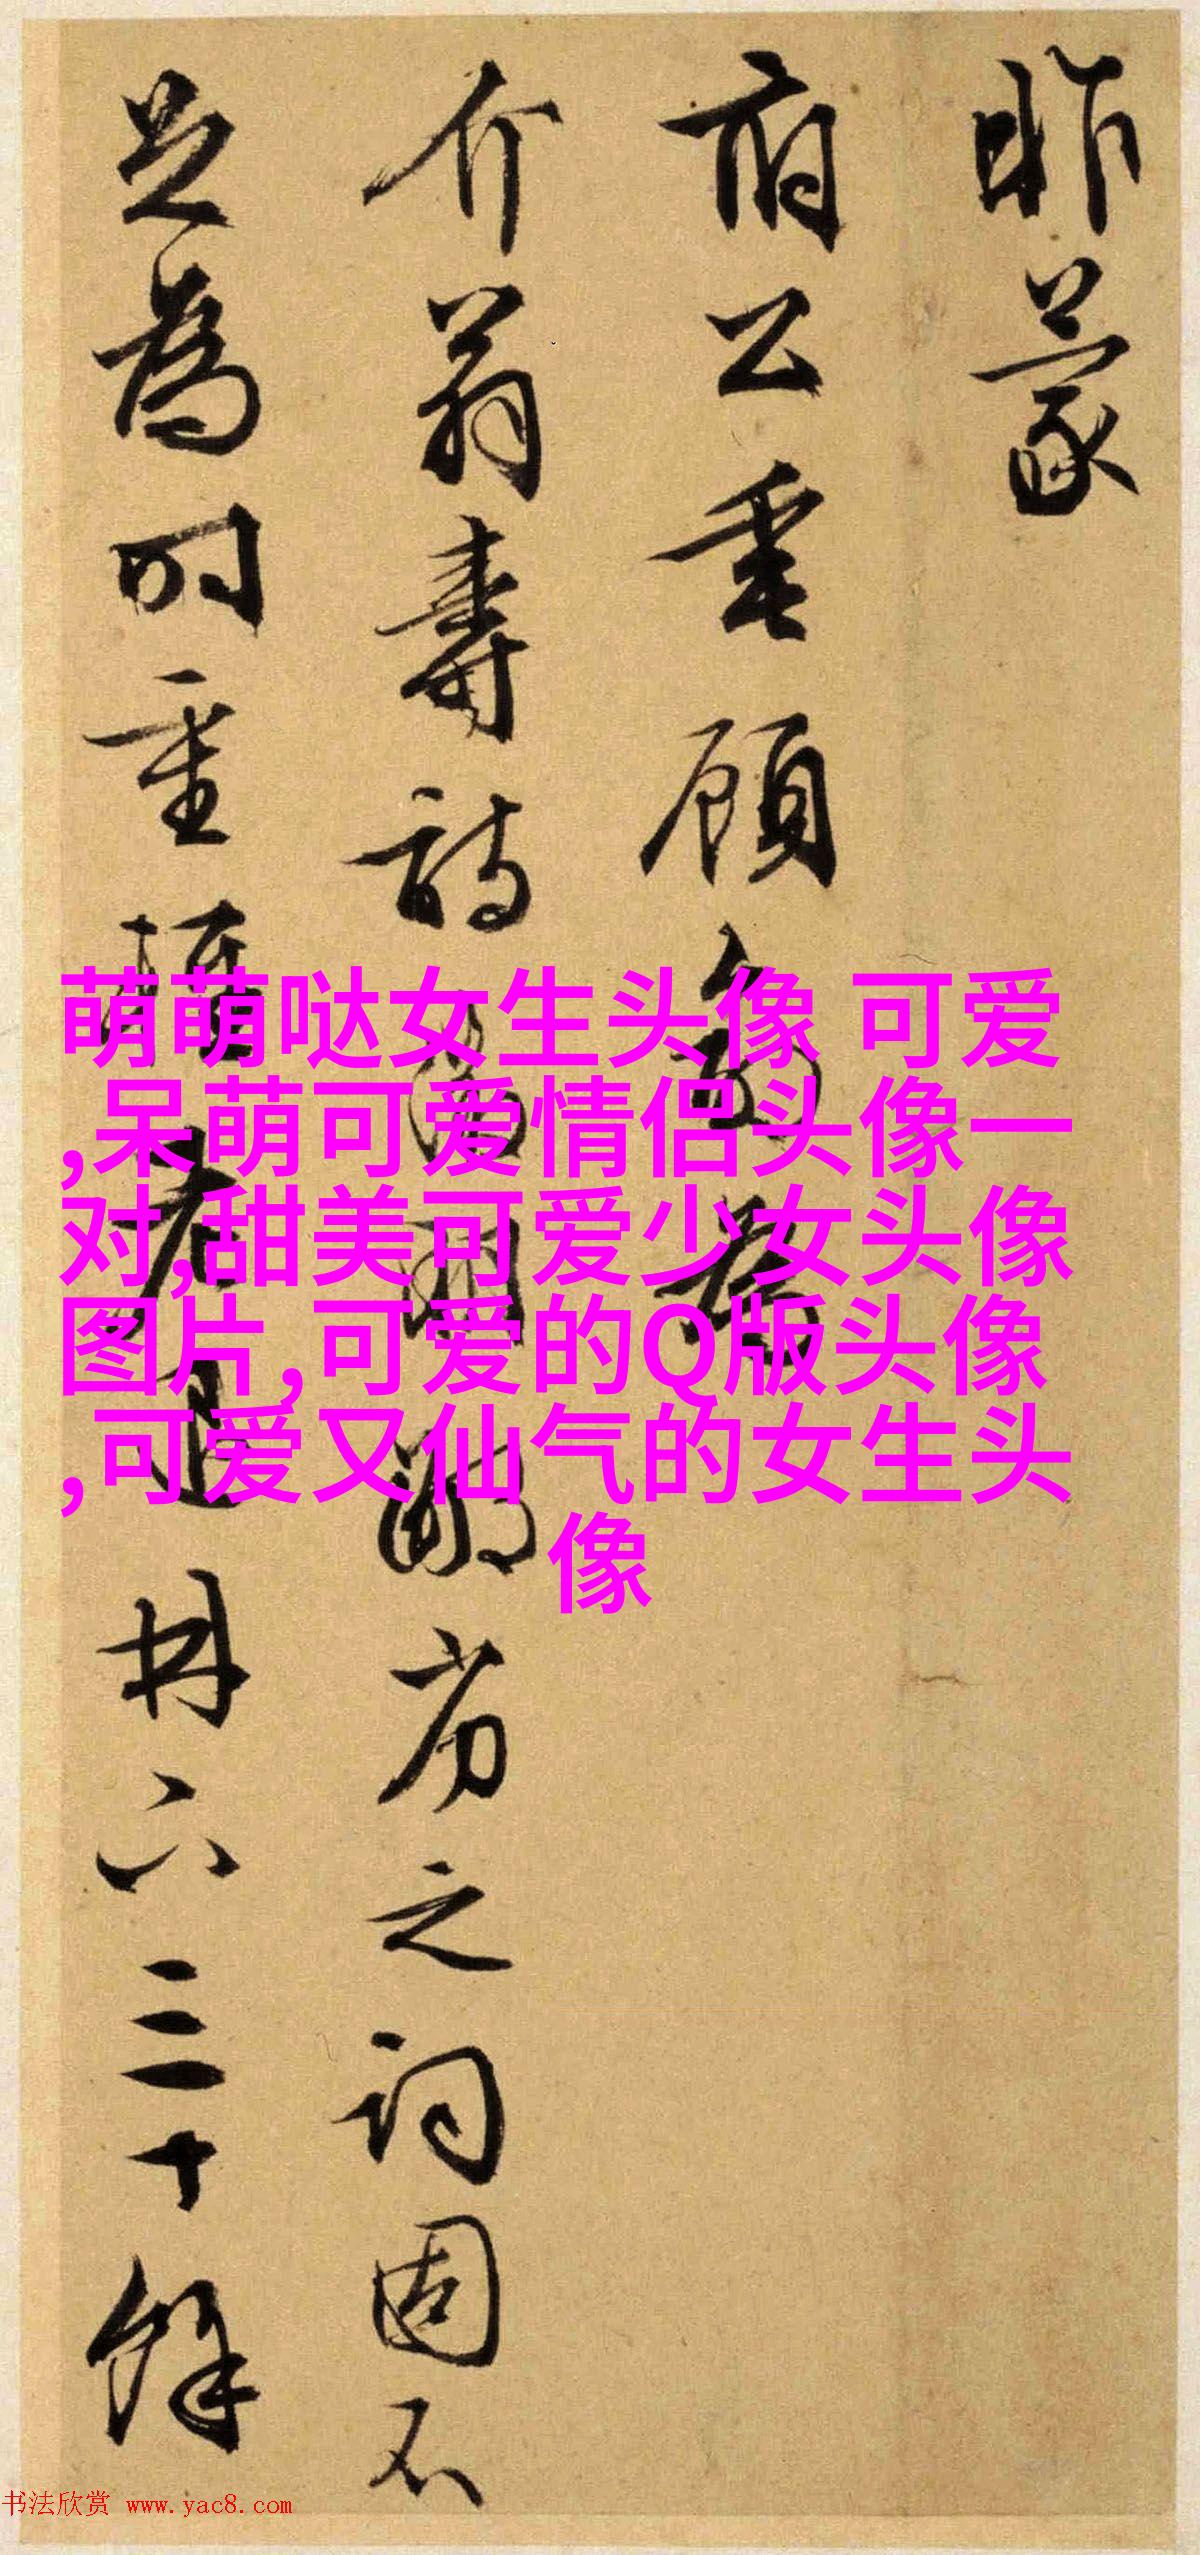 昨蒙
府公垂顾
介翁寿诗
劳之词固不
足为时重
冉六三十馀
萌萌哒女生头像 可爱
,呆萌可爱情侣头像一
对,甜美可爱少女头像
图片,可爱的Q版头像
,可爱又仙气的女生头
像
书法欣赏 www.yac8.com